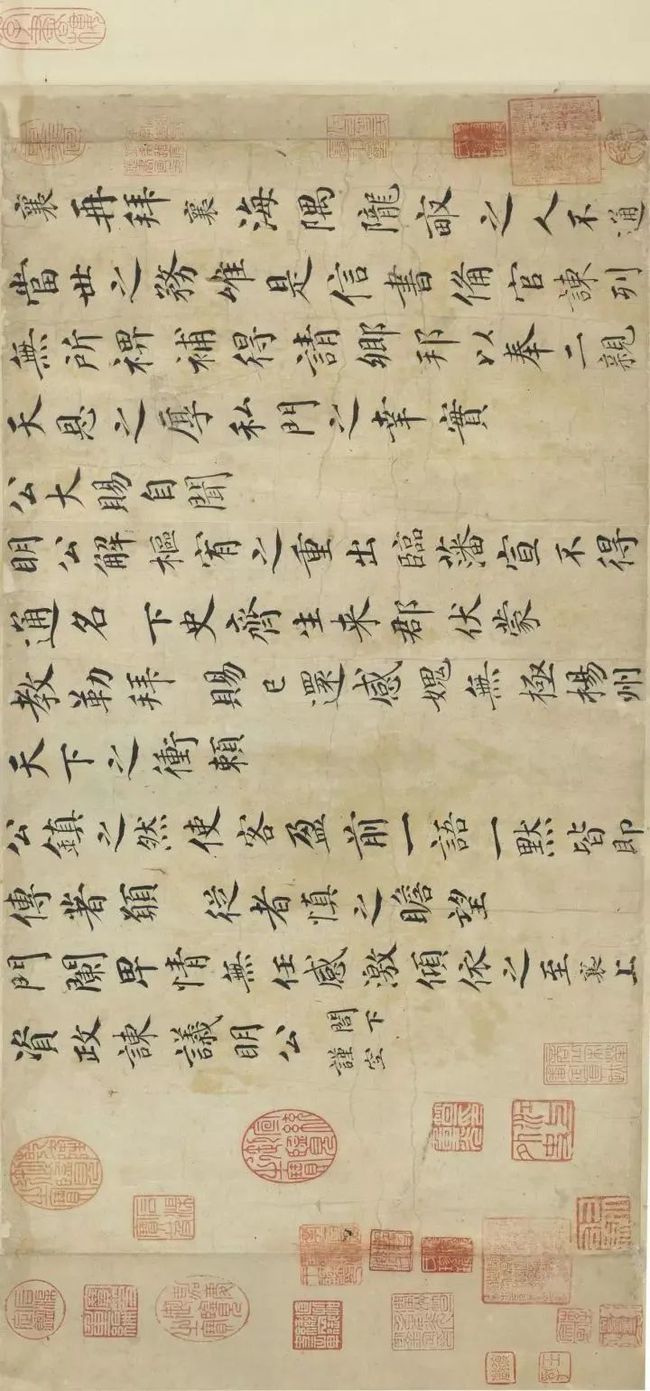 襄再拜襄海隅隴畝之人不通
當世之務唯是信書備官諫列
無所裨補得請鄉邦以奉二親
天恩之厚私門之幸實
公大賜自聞
明公解樞宥之重出臨藩宣不得
通名下史齊生来郡伏蒙
教勒拜賜已還感媿無極楊州
天下之衝賴
公鎮之然使客盈前一語一默皆即
傳著願従者慎之瞻望
門闌卑情無任感激傾依之至襄上
資政諫議明公閤下
謹空